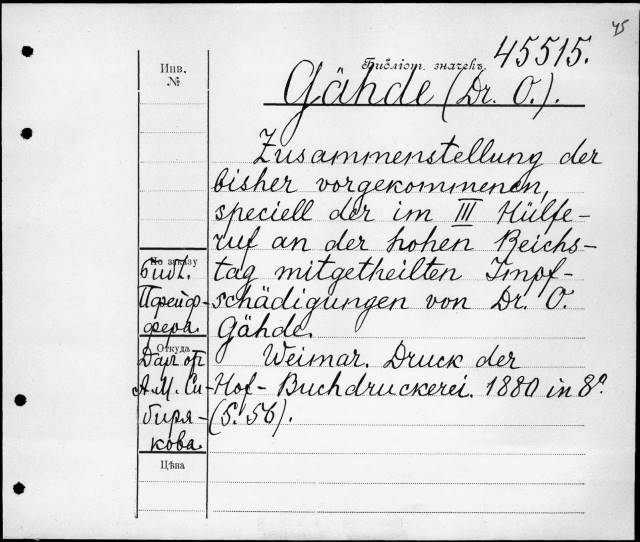 45
Библіот. значекъ 45515.
Инв.
№
Gähde (Dr. O.).
Zusammenstellung der
bisher vorgekommenen,
speciell der im III Hülfe-
ruf an der hohen Reichs-
tag mitgetheilten Impf-
schädigungen von Dr. O.
Gähde.
Weimar. Druck der
Hof-Buchdruckerei. 1880 in 8°.
(S. 56).
По заказу
Библ.
Пфейф-
фера.
Откуда
Дар от
А. М. Си-
биря-
кова.
Цѣна